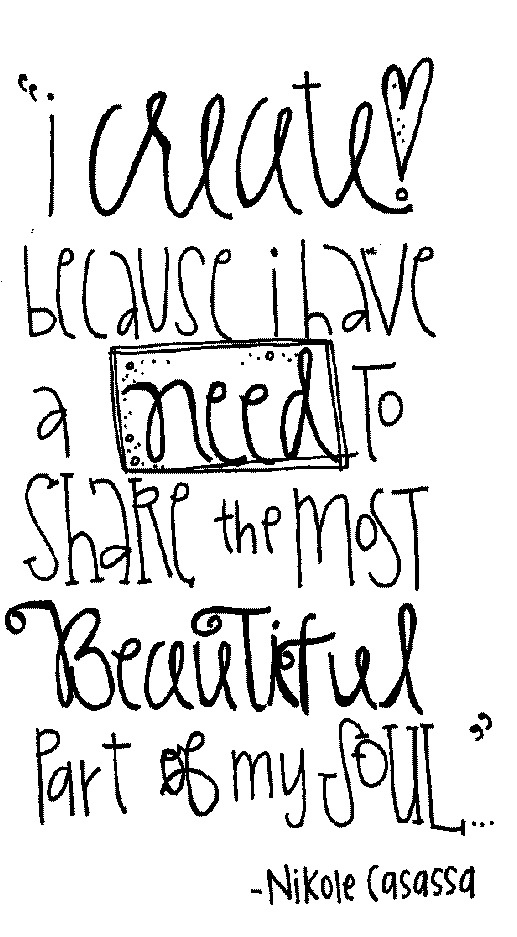 "i create!
because i have
a need To
ShaRe the moST
BeauTiful
Part of my SOUL..."
-Nikole Casassa